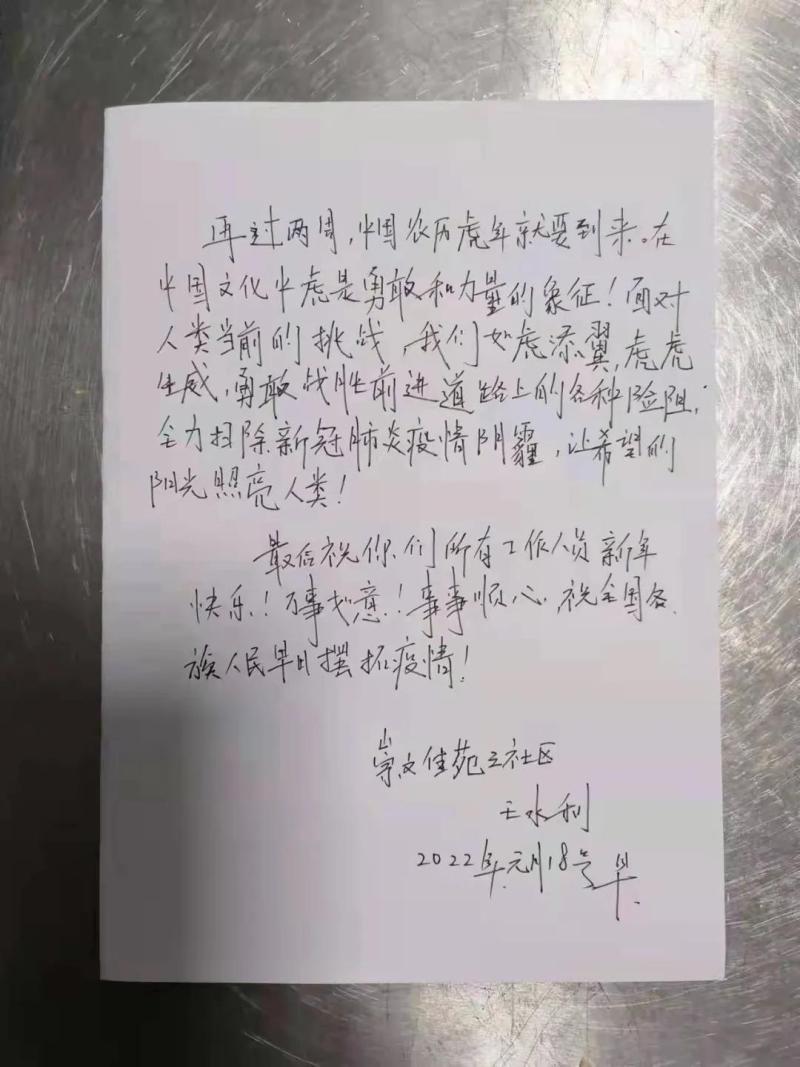 再过两周，中国农历虎年就要到来。在
中国文化中虎是勇敢和力量的象征！面对
人类当前的挑战，我们如虎添翼，虎虎
生威，勇敢战胜前进道路上的各种险阻，
全力扫除新冠肺炎疫情阴霾，让希望的
阳光照亮人类！
最后祝你们所有工作人员新年
快乐！万事如意！事事顺心，祝全国各
族人民早日摆拓疫情！
崇文佳苑三社区
王水利
2022年元月18号早